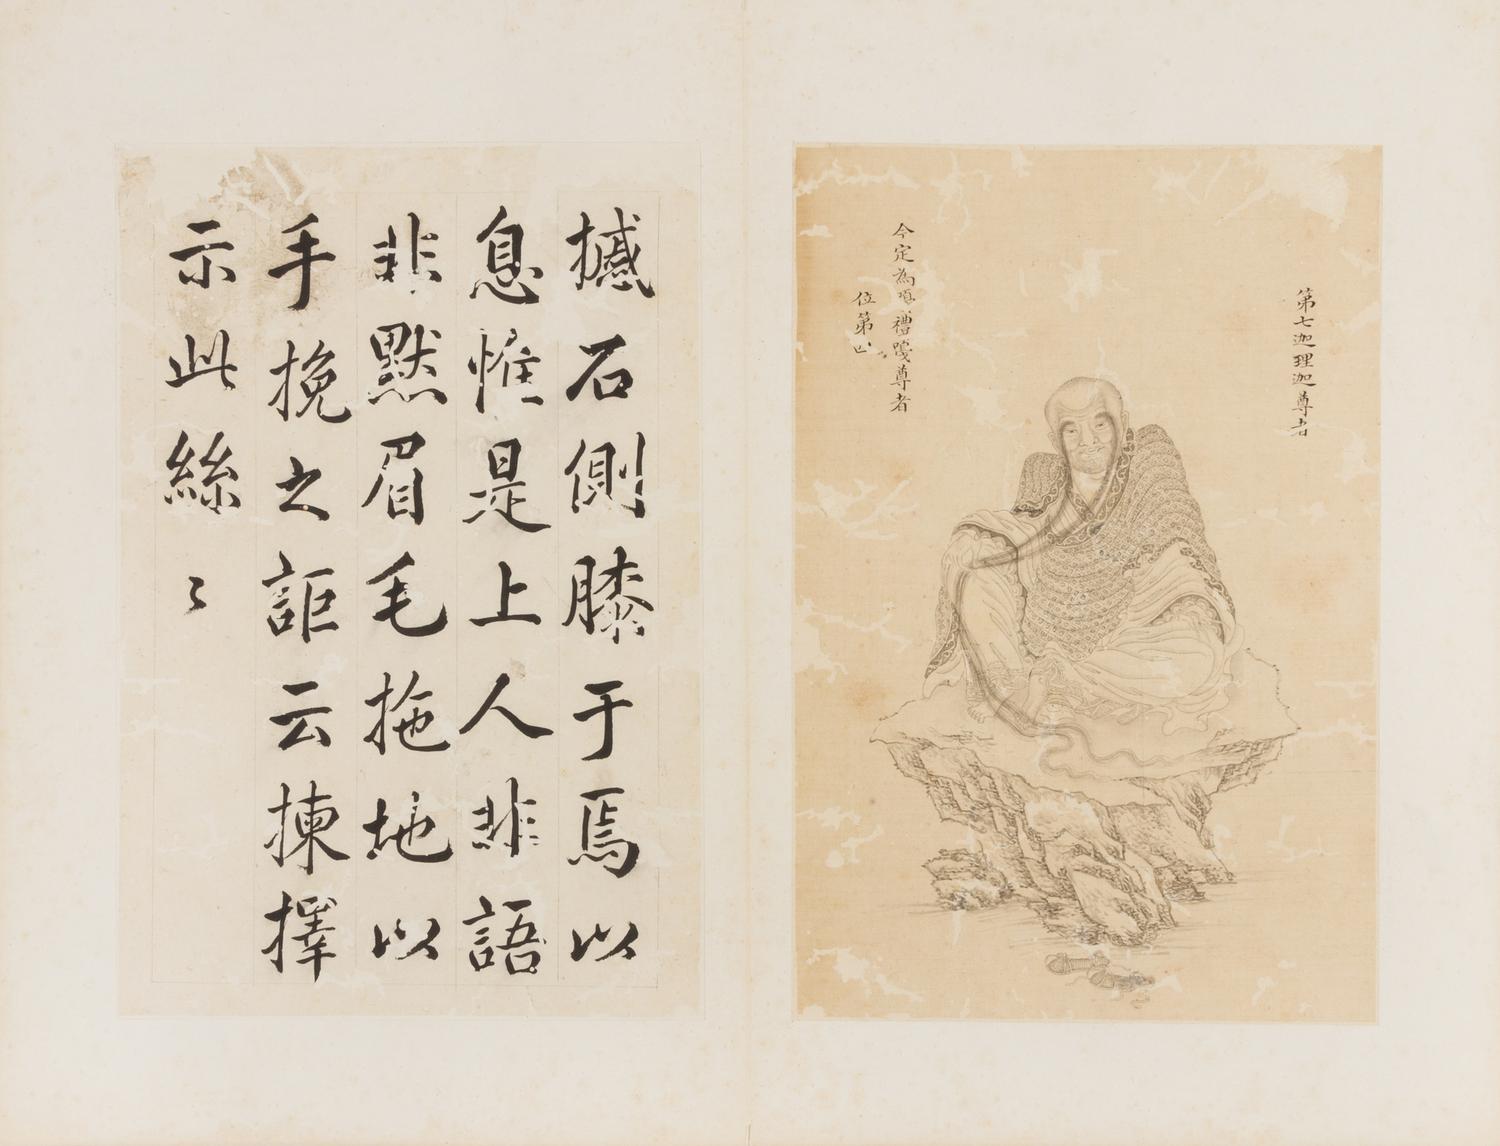 第七迦理迦尊者
今定為嘎禮嘎尊者
位第
撼石側膝于焉以
息惟是上人非語
非默眉毛拖地以
手挽之詎云揀擇
示此絲〻